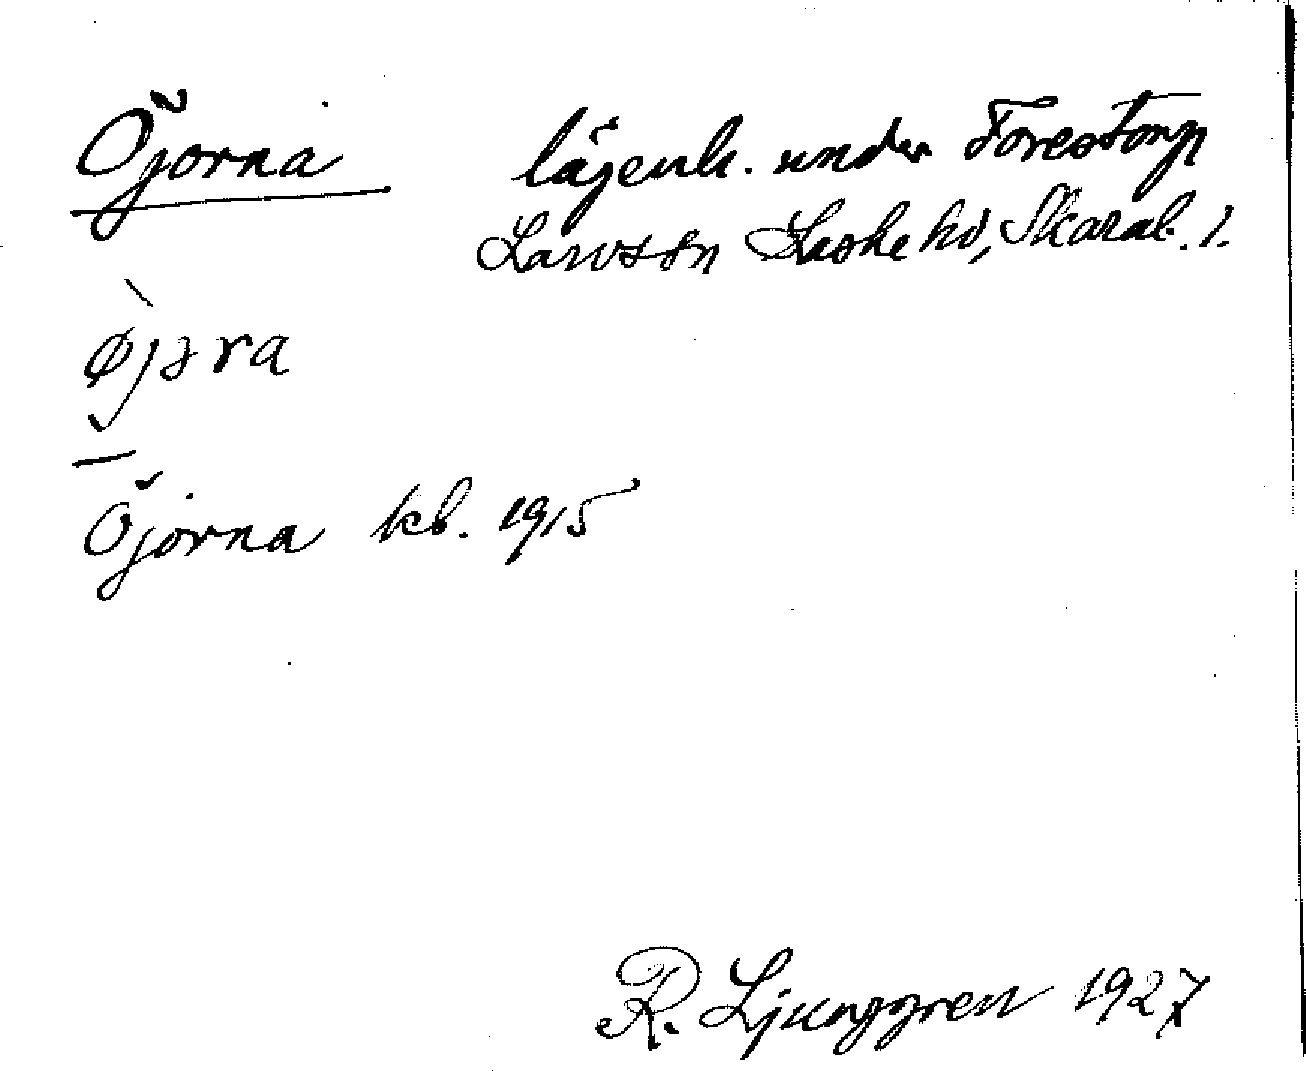 Öjorna lägenh. under Forestorp
Larvs sn Laske hd, Skarab. l.
øjəra
Öjorna kb. 1915
R. Ljunggren 1927